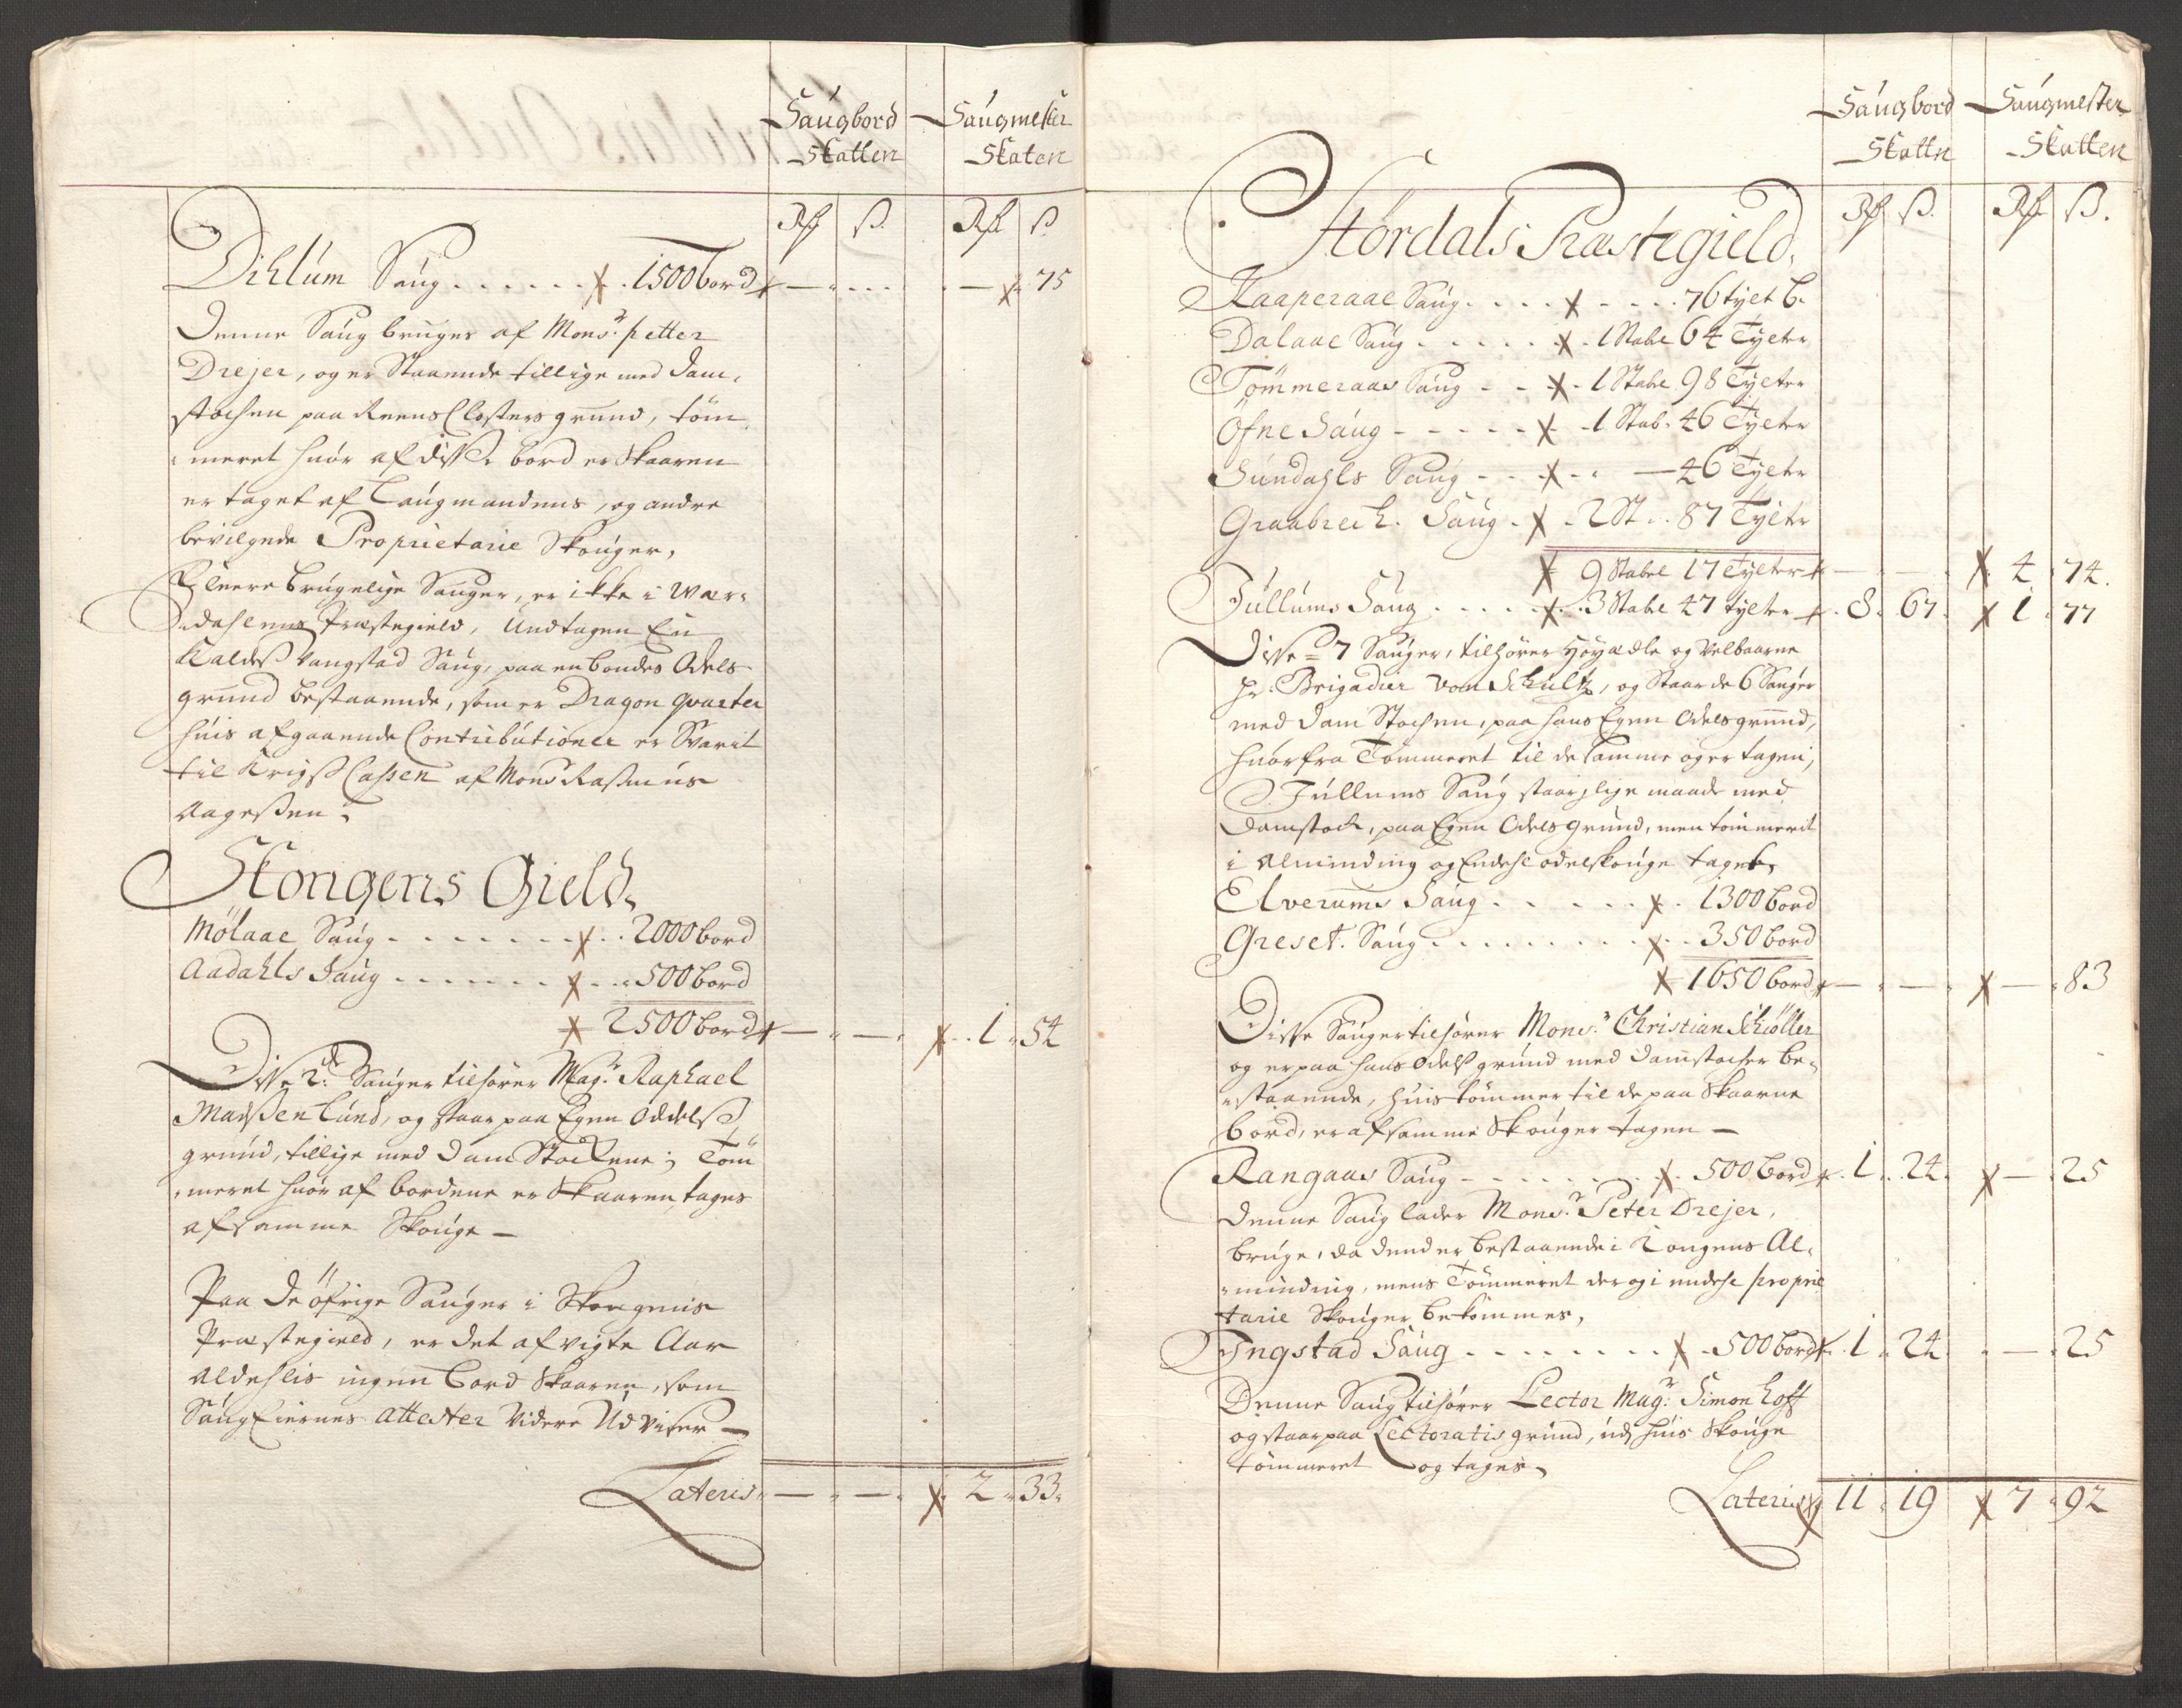 Saugbord Saugmester
Skatten Skaten
Rß ß. Rß ß
Dihlum Saug . . . . . . 1500 bord — — 75
Denne Saug bruges af Monsr. petter
Drejer, og er Staaende tillige med dam,
stochen paa Reens Closters grund, töm
meret huor af disse bord er Skaaren
er taget af Laugmandens, og andre
bevilgede Proprietarie Skouger,
Fleere brugelige Sauger, er ikke i Wær,
dahlens Præstegield, Undtagen Een
Kaldes Vangstad Saug, paa en bondes Odels
grund bestaaende, som er Dragon qvarter
huis afgaaende Contributioner er Svaret
til Krigs Cassen af Monsr Rasmus
Aagessen.
Skongens Gield.
Mölaae Saug . . . . . . . 2000 bord
Aadahls Saug . . . . . . . 500 bord
2500 bord — — 1 54
Disse 2de Sauger tilhører Magr. Raphael
Madssen Lund, og staar paa Egen Oddels
grund, tillige med dam Stockene; Töm
meret huor af bordene er Skaaren, tages
af samme Skouge —
Paa de öfrige Sauger i Skongens
Præstegield, er det afvigte Aar
aldehlis ingen bord Skaaren, som
Saug Eiernes Attester Videre Udviser —
Lateris — — 2 33
Saugbord Saugmester
Skattn Skatten
Rß ß. Rß ß.
Stördals Præstegield.
Kaaperaae Saug . . . . . . . . 76 tyet b.
Dalaae Saug . . . . . 1 Stabe 64 Tyeter
Tömmeraas Saug - - 1 Stabe 98 Tyeter
Öfne Saug - - - - - 1 Stab. 46 Tyeter
Sundahls Saug - - - — 46 Tyetr
Graabrech. Saug . 2 St. . 87 Tyetr
9 Stabel 17 Tyeter — 4 74.
Jullums Saug . . . . . 3 Stabe 47 tyeter 8. 67. 1 77
Disse 7 Sauger, tilhører Höyædle og Velbaarne
Hr. Brigadier von Schultz, og Staar de 6 Sauger
med dam Stochen, paa hans Egen Odels grund,
huorfra Tömmeret til de samme og er tagen,
Jullums Saug staar i lige maade med
damstock, paa Egen Odels grund, men tömmeret
i Alminding og Endehl odelskouge taget,
Elverums Saug . . . . . . 1300 bord
Greset. Saug . . . . . . . . . 350 bord
1650 bord — — — 83
Disse Sauger tilhører Monsr. Christian Schöller
og er paa hans Odels grund med damstocker be,
staaende, huis tömmer til de paa Skaarne
bord, er af samme Skouger tagen —
Rangaas Saug - - - - - - - - 500 bord 1. 24. — 25
Denne Saug lader Monsr. Peter Drejer,
bruge, da dend er bestaaende i Kongens Al,
minding, mens Tömmeret der og i endehl proprie
tarie Skouger bekommes,
Ingstad Saug . . . . . . . . 500 bord 1 24 — 25
Denne Saug tilhører Lector Magr. Simon Hoff
og staar paa Lectoratis grund, udj huis Skouge
tömmeret og tages.
Lateris 11 19 7 92